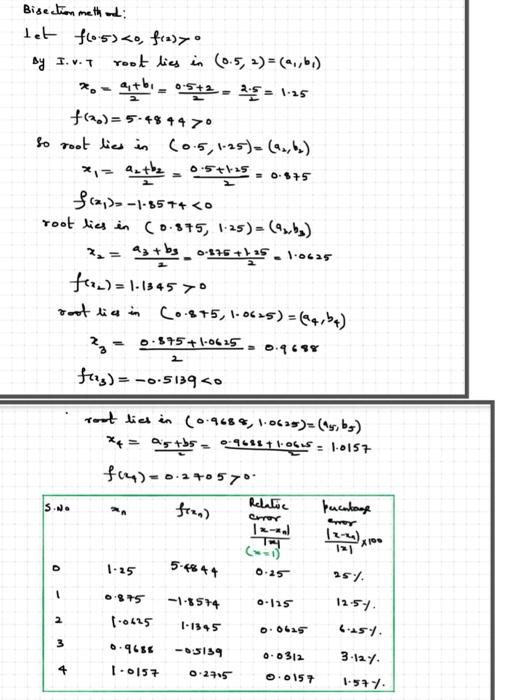 Bisection method:
Let f(0.5)<0, f(2)>0
By I.V.T root lies in (0.5, 2) = (a₁, b₁)
x₀ = (a₁+b₁)/2 = (0.5+2)/2 = 2.5/2 = 1.25
f(x₀) = 5.4844 >0
So root lies in (0.5, 1.25) = (a₂, b₂)
x₁ = (a₂+b₂)/2 = (0.5+1.25)/2 = 0.875
f(x₁) = -1.8574 <0
root lies in (0.875, 1.25) = (a₃, b₃)
x₂ = (a₃+b₃)/2 = (0.875+1.25)/2 = 1.0625
f(x₂) = 1.1345 >0
root lies in (0.875, 1.0625) = (a₄, b₄)
x₃ = (0.875+1.0625)/2 = 0.9688
f(x₃) = -0.5139 <0
root lies in (0.9688, 1.0625) = (a₅, b₅)
x₄ = (a₅+b₅)/2 = (0.9688+1.0625)/2 = 1.0157
f(x₄) = 0.2705 >0.
S.No xₙ f(xₙ) Relative error |x-xₙ|/|x| (x=1) percentage error |x-xₙ|/|x| ×100
0 1.25 5.4844 0.25 25%.
1 0.875 -1.8574 0.125 12.5%.
2 1.0625 1.1345 0.0625 6.25%.
3 0.9688 -0.5139 0.0312 3.12%.
4 1.0157 0.2705 0.0157 1.57%.